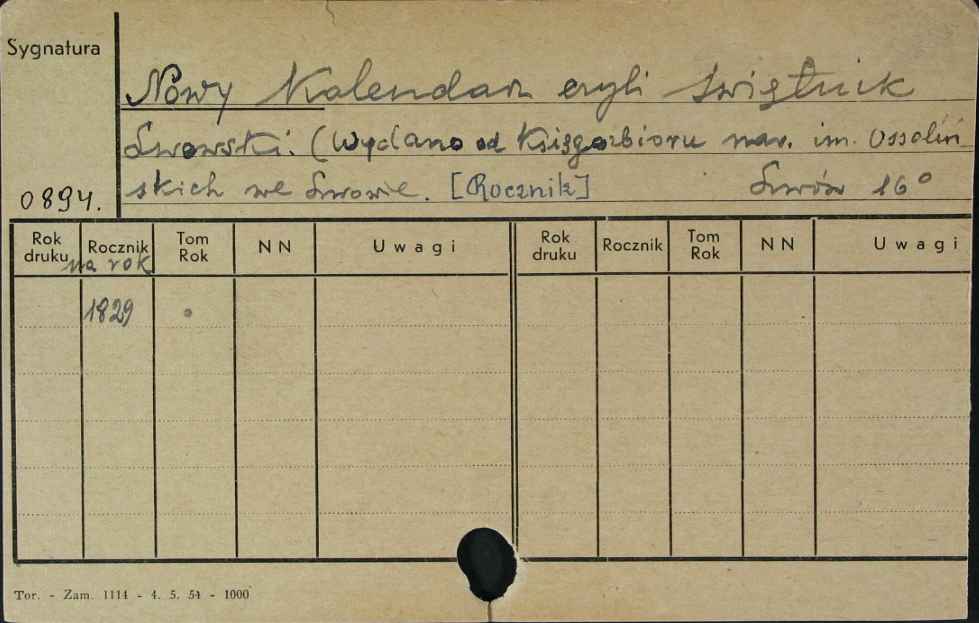 Sygnatura
Nowy Kalendarz czyli świętnik
Lwowski. (Wydano od Księgozbioru nar. im. Ossoliń
skich we Lwowie. [Rocznik] Lwów 16°
0894.
Rok druku Rocznik Tom Rok NN Uwagi Rok druku Rocznik Tom Rok NN Uwagi
na rok
1829
Tor. - Zam. 1114 - 4. 5. 54 - 1000